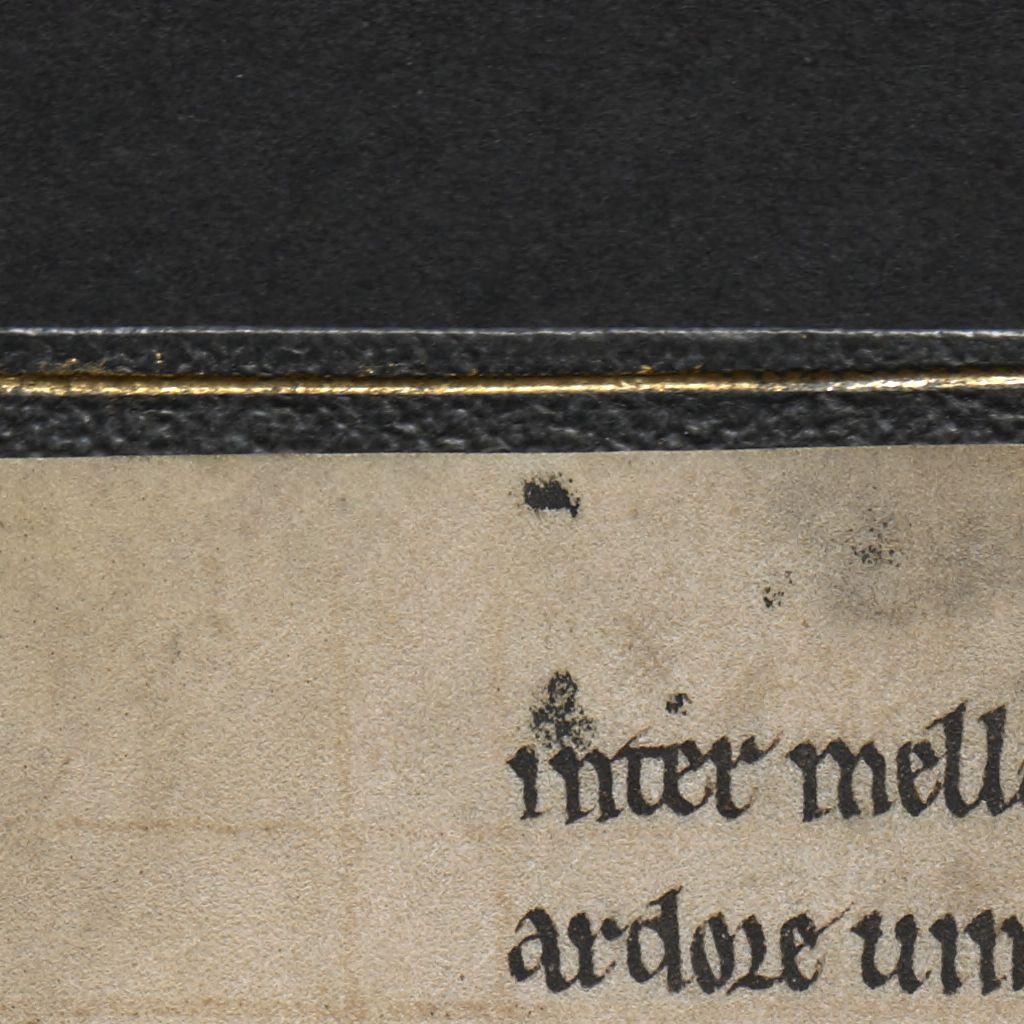 inter mell
ardore uin